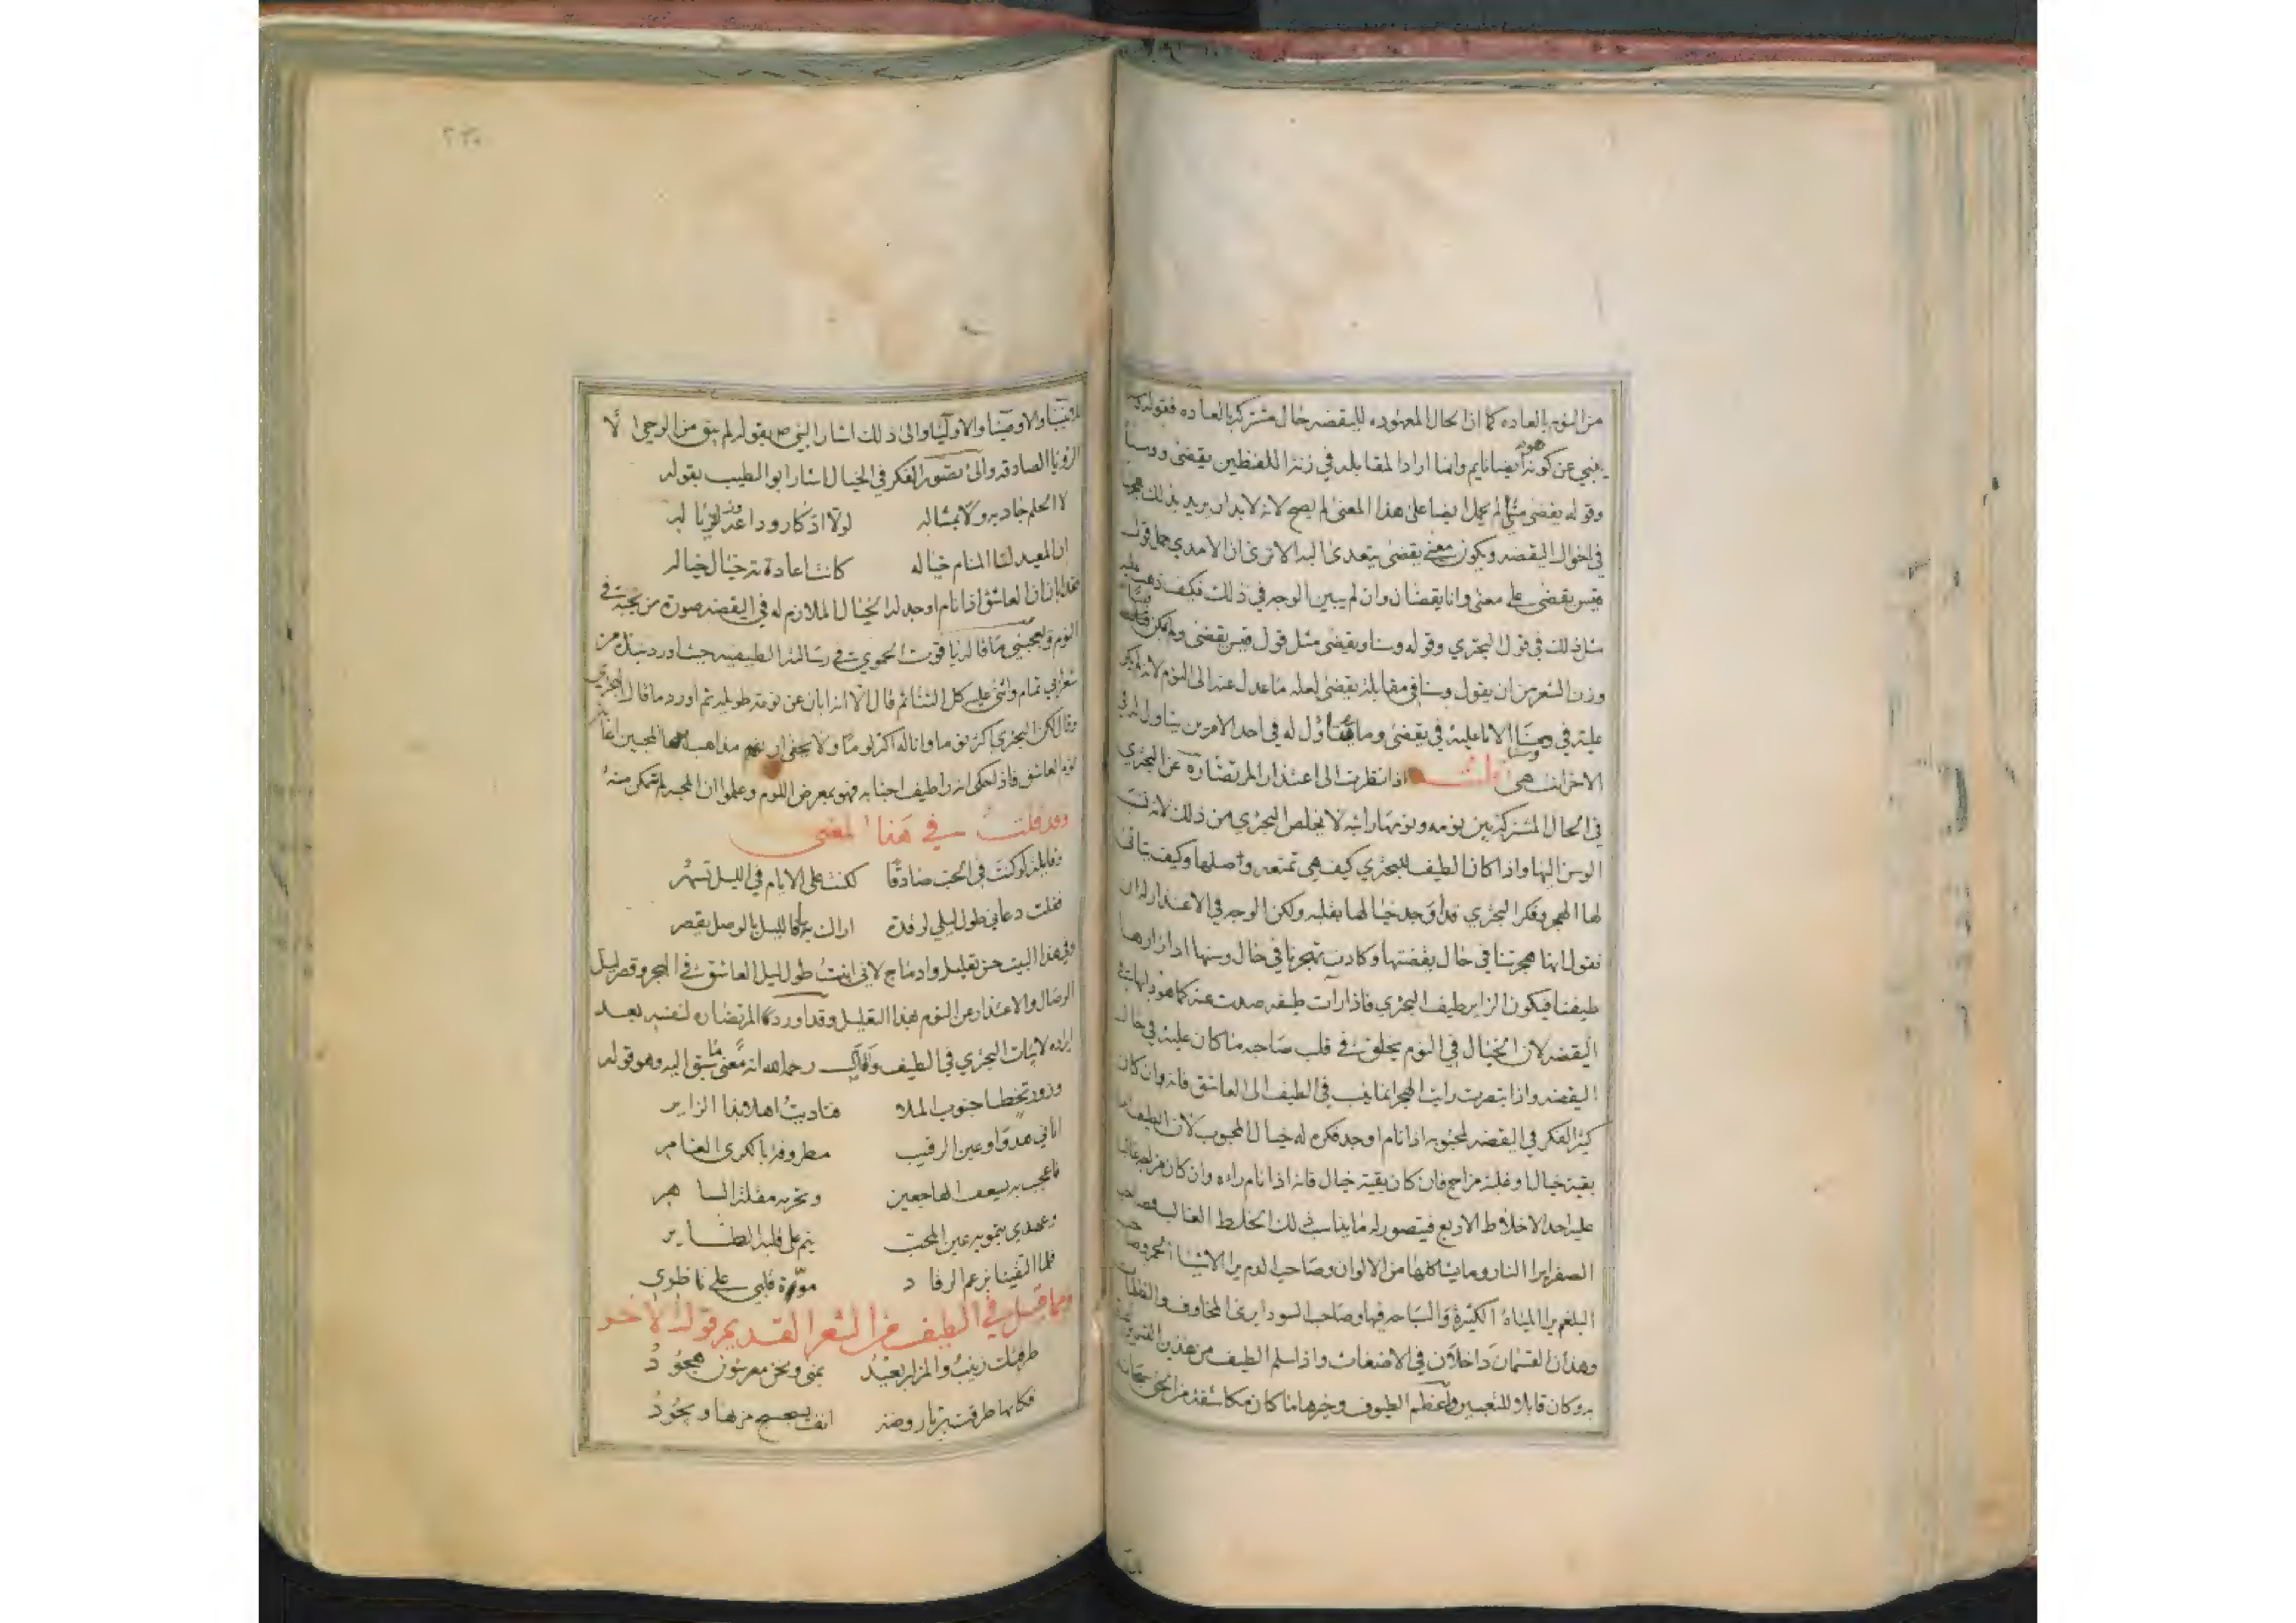 من النوم بالعاده كما ان الحال المعهوده لليقضه حال مشتركه بالعاده فقوله
يغني عن كونه هو ايضا نايم وانما اراد المقابله في زنة اللفظين يقضى ووسنا
وقوله يقضى متى لم يحمل ايضا على هذا المعنى لم يصح لانه لابد ان يريد بذلك هجرها
في احوال اليقضه ويكون معنى يقضى يتعدى اليه الا ترى ان الامدي حمل قول
قيس يقضى على معنى وانا يقضان وان لم يبين الوجه في ذلك فكيف ذهب عليه
مثل ذلك في قول البحتري وقوله وسنا ويقضى مثل قول قيس يقضى ولو امكن قيسا
وزن الشعر من ان يقول وسنا في مقابلة يقضى لعله ما عدل عنه الى النوم لانه لم يكن
عليه في وسنا الا ما عليه في يقضى وما يتأول له في احد الامرين يتاول له في
الاخر انتهى قلت اذا نظرت الى اعتذار المرتضى ره عن البحتري
في الحال المشتركة بين نومه ونومها رايته لا يخلص البحتري من ذلك لانه نسب
الوسن اليها واذا كان الطيف للبحتري كيف هي تمنعه وصلها وكيف يتاتى
لها الهجر وفكر البحتري قد اوجد خيالها بقلبه ولكن الوجه في الاعتذار له ان
نقول انها هجرتنا في حال يقضتها وكادت تهجرنا في حال وسنها اذا زارها
طيفنا فيكون الزاير طيف البحتري فاذا رأت طيفه صدت عنه كما هو دابها في
اليقضه لان الخيال في النوم يخلق في قلب صاحبه ما كان عليه في حال
اليقضه واذا تبصرت رايت الهجر انما ينسب في الطيف الى العاشق فانه وان كان
كثير الفكر في اليقضه لمحبوبه اذا نام اوجد فكره له خيال المحبوب لان الطيف اما
بقية خيال او غلبة مزاج فان كان بقية خيال فانه اذا نام راه وان كان مزاجه غالبا
عليه احد الاخلاط الاربع فيتصور له ما يناسب ذلك الخلط الغالب فصاحب
الصفرا يرا النار وما يشاكلها من الالوان وصاحب الدم يرا الاشيا الحمر وصاحب
البلغم يرا المياه الكثيرة والسباحه فيها وصاحب السودا يرى المخاوف والظلمات
وهذان القسمان داخلان في الاضغاث واذا سلم الطيف من هذين القسمين
بره كان قابلا للتعبير واعظم الطيوف وخيرها ما كان مكاشفة من الحق سبحانه
للانبيا والاوصيا والاوليا والى ذلك اشار النبي ص بقوله لم يبق من الوحي الا
الرؤيا الصادقه والى تصور الفكر في الخيال اشار ابو الطيب بقوله
لا الحلم جاد به ولا بمثاله لولا اذكار وداعه وزياله
ان المعيد لنا المنام خياله كانت اعادته خيال خياله
هذا بان ان العاشق اذا نام اوجد له الخيال الملازم له في اليقضه صورة من يحبه في
النوم ويعجبني ما قاله ياقوت الحموي في رسالته الطيفيه حيث اورد نبذة من
شعر ابي تمام واثنى عليه كل الثنا ثم قال الا انه ابان عن نومة طويله ثم اورد ما قال البحتري
وقال لكن البحتري اكثر نوما واناله اكثر لوما ولا يخفى ان مذاهب المحبين
نوم العاشق فاذا حكى انه راى طيف احبابه فهو بمعرض اللوم وعلموا ان الهجر لم تمكن منه
وقد قلت في هذا المعنى
وقايلة لو كنت في الحب صادقا لكنت على الايام في الليل تسهر
فقلت دعاني طول ليلي لرقدة اراك بها فالليل بالوصل يقصر
وفي هذا البيت حسن تعليل وادماج لاني اثبت طول ليل العاشق في الهجر وقصر ليل
الوصال والاعتذار عن النوم بهذا التعليل وقد اورد المرتضى ره لنفسه بعد
ايراده لابيات البحتري في الطيف وقال رحمه الله انه معنى ما سبق اليه وهو قوله
وزور تخطا جنوب الملا فناديت اهلا بذا الزاير
اتاني هدوا وعين الرقيب مطروفة بالكرى الغامر
فاعجب به يسعف الهاجعين وتحرمه مقلة الساهر
وعهدي بتمويه عين المحب ينم على قلبه الطاير
فلما التقينا برغم الرقاد موّه قلبي على ناظري
ومما قيل في الطيف من الشعر القديم قول الاخر
طرقتك زينب والمزار بعيد بمنى ونحن معرسون هجود
فكانما طرقت بريا روضة انف يسحسح مزنها ويجود